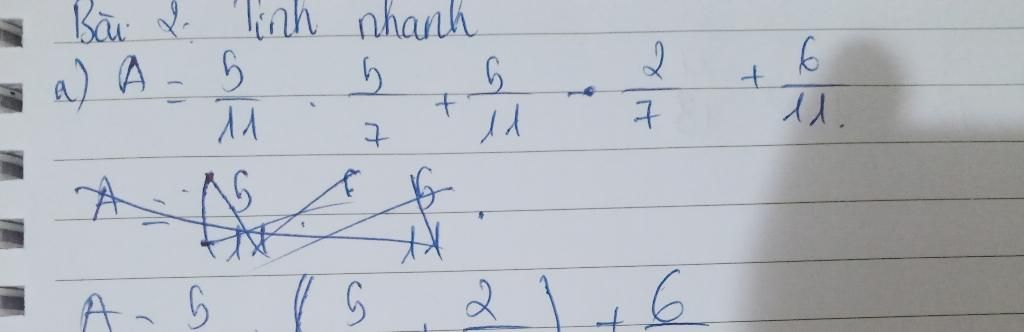 Bài 2. Tính nhanh
a) A = 5/11 . 5/7 + 5/11 . 2/7 + 6/11.
A = 5 ( 5 + 2 ) + 6